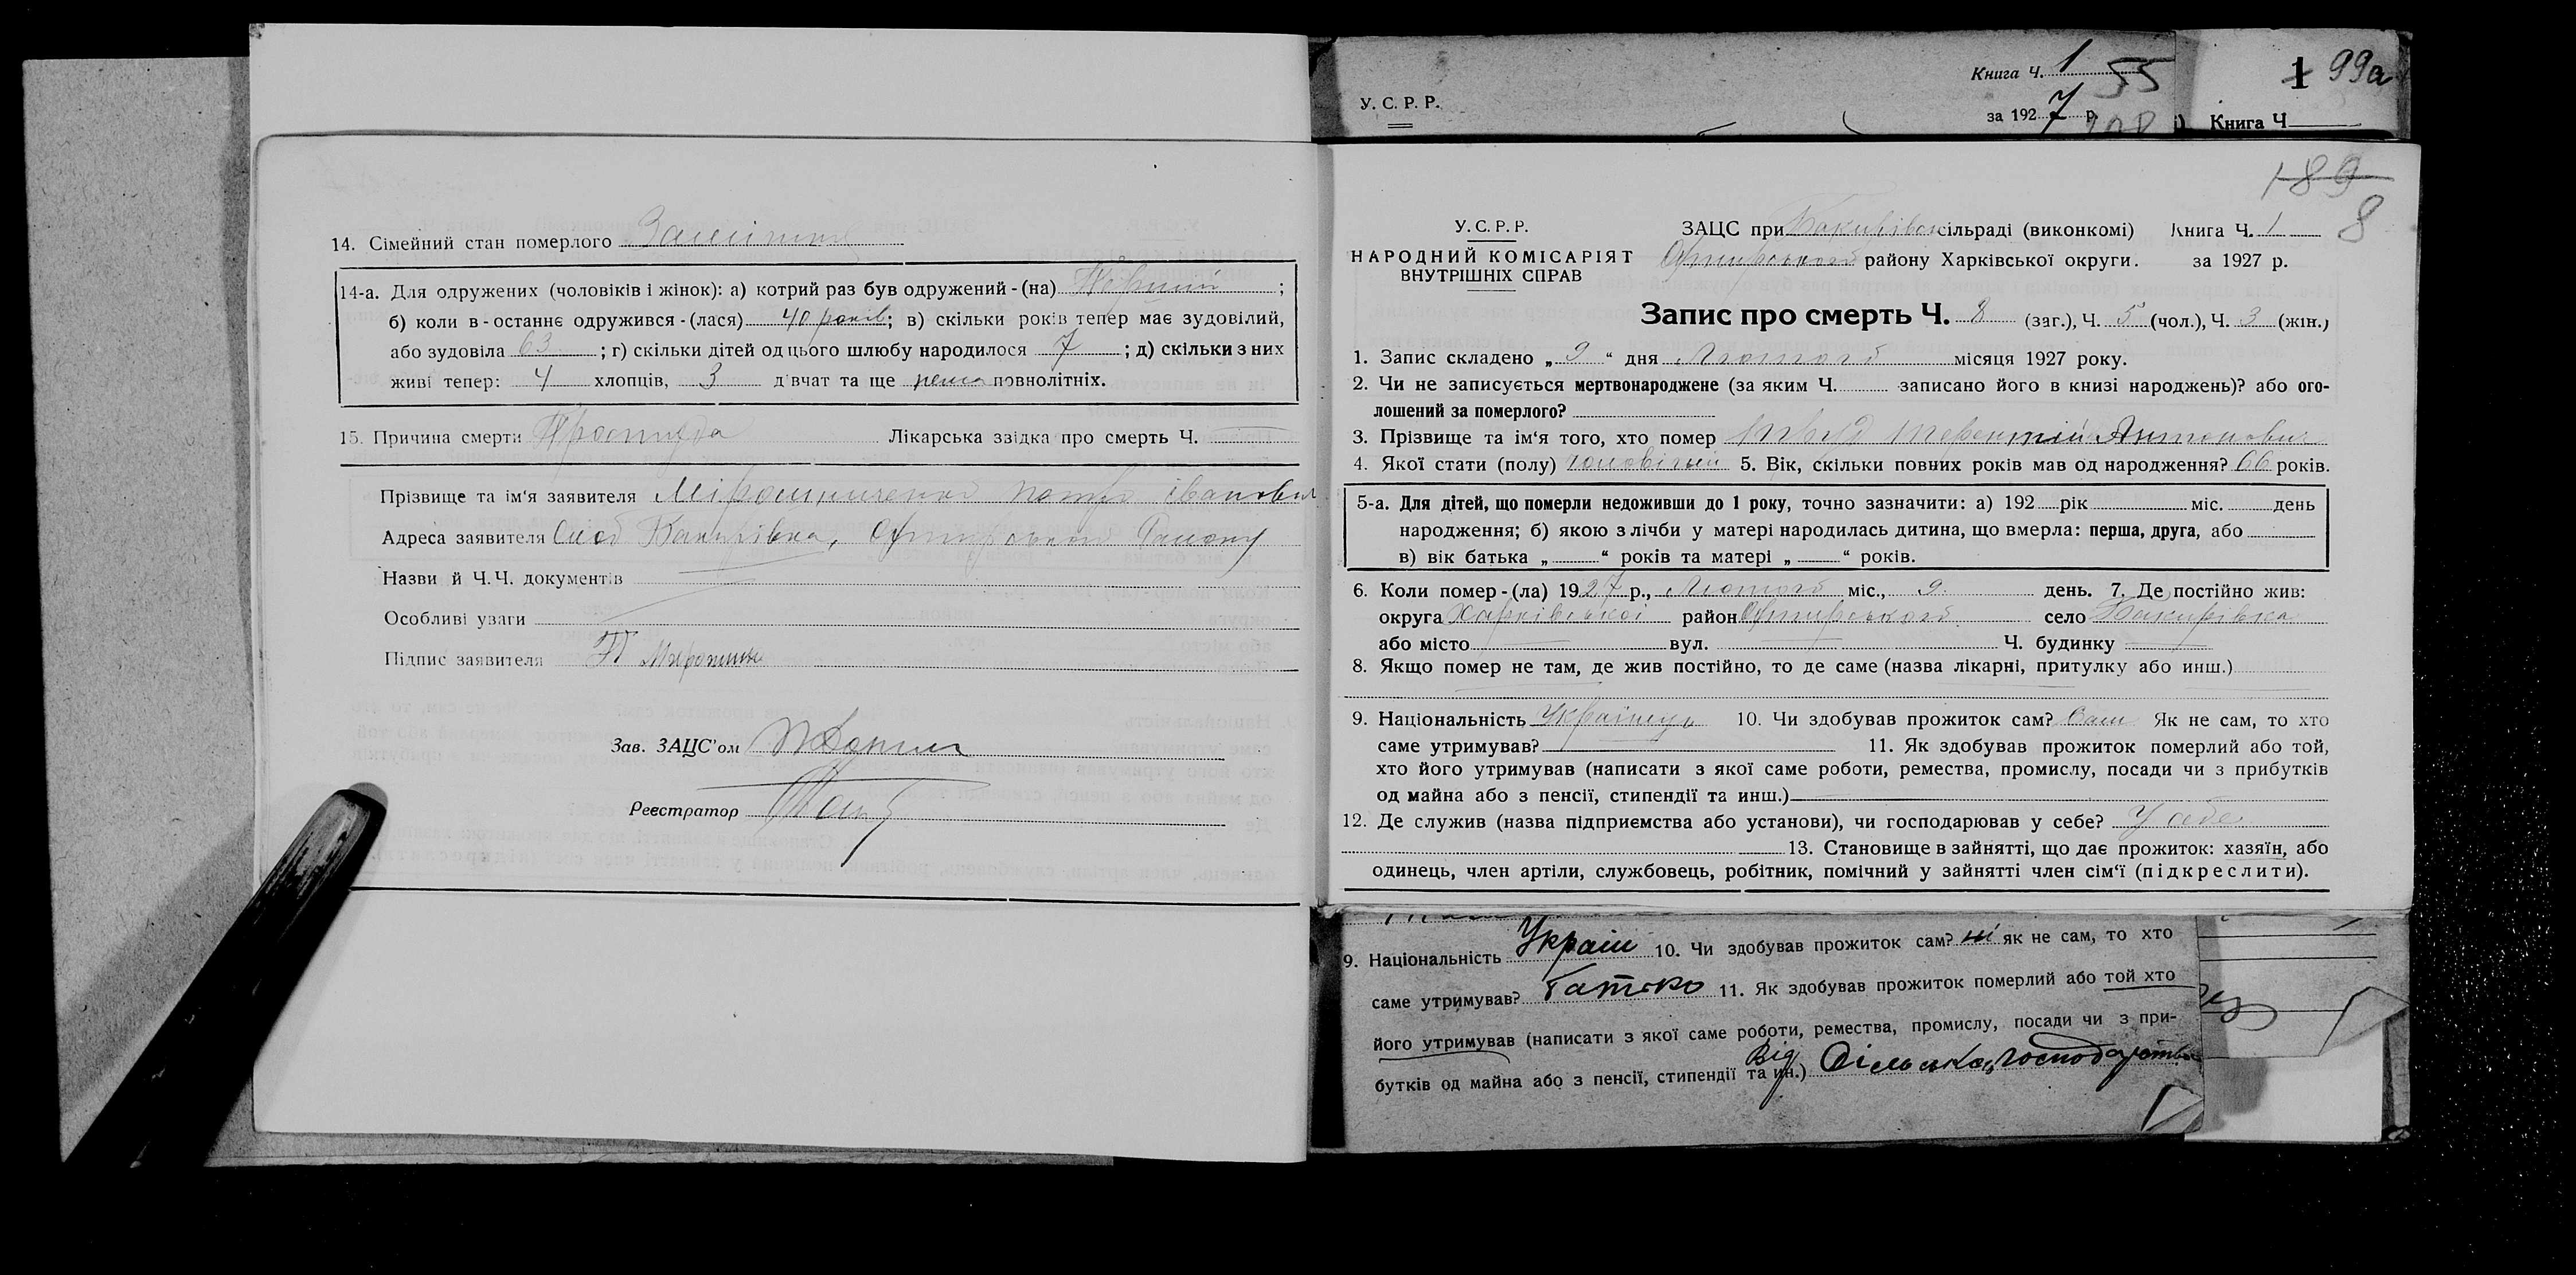 14. Сімейний стан померлого
14-а. Для одружених (чоловіків і жінок): а) котрий раз був одружений-(на) Перший ;
б) коли в-останнє одружився-(лася) 40 років; в) скільки років тепер має зудовілий,
або зудовіла 63 ; г) скільки дітей од цього шлюбу народилося 7 ; д) скільки з них
живі тепер: 4 хлопців, 3 дівчат та ще нема повнолітніх.
15. Причина смерти Простуда Лікарська звідка про смерть Ч.
Прізвище та ім'я заявителя Мірошниченко Петро Іванович
Адреса заявителя Слоб Бакирівка, Охтирського Району
Назви й Ч.Ч. документів
Особливі уваги
Підпис заявителя П Мирошни
Зав. ЗАЦС'ом
Реєстратор
У. С. Р. Р.
Книга Ч. 1
55
за 1927 р.
1 99а
Книга Ч
189
8
У. С. Р. Р.
НАРОДНИЙ КОМІСАРІЯТ
ВНУТРІШНІХ СПРАВ
ЗАЦС при Бакирівськ сільраді (виконкомі) Книга Ч. 1
Охтирського району Харківської округи. за 1927 р.
Запис про смерть Ч. 8 (заг.), Ч. 5 (чол.), Ч. 3 (жін.)
1. Запис складено „ 9 “ дня Лютого місяця 1927 року.
2. Чи не записується мертвонароджене (за яким Ч. записано його в книзі народжень)? або ого-
лошений за померлого?
3. Прізвище та ім'я того, хто помер Терентій Антонович
4. Якої стати (полу) чоловічий 5. Вік, скільки повних років мав од народження? 66 років.
5-а. Для дітей, що померли недоживши до 1 року, точно зазначити: а) 192 рік міс. день
народження; б) якою з лічби у матері народилась дитина, що вмерла: перша, друга, або
в) вік батька „ “ років та матері „ “ років.
6. Коли помер-(ла) 1927 р., Лютого міс., 9 день. 7. Де постійно жив:
округа Харківської район Охтирського село Бакирівка
або місто вул. Ч. будинку
8. Якщо помер не там, де жив постійно, то де саме (назва лікарні, притулку або инш.)
9. Національність Українець 10. Чи здобував прожиток сам? Сам Як не сам, то хто
саме утримував? 11. Як здобував прожиток померлий або той,
хто його утримував (написати з якої саме роботи, ремества, промислу, посади чи з прибутків
од майна або з пенсії, стипендії та инш.)
12. Де служив (назва підприємства або установи), чи господарював у себе? У себе
13. Становище в зайнятті, що дає прожиток: хазяїн, або
одинець, член артіли, службовець, робітник, помічний у зайнятті член сім'ї (підкреслити).
9. Національність Україн 10. Чи здобував прожиток сам? ні як не сам, то хто
саме утримував? батько 11. Як здобував прожиток померлий або той хто
його утримував (написати з якої саме роботи, ремества, промислу, посади чи з при-
бутків од майна або з пенсії, стипендії та ин.) Від сільськ. господарства